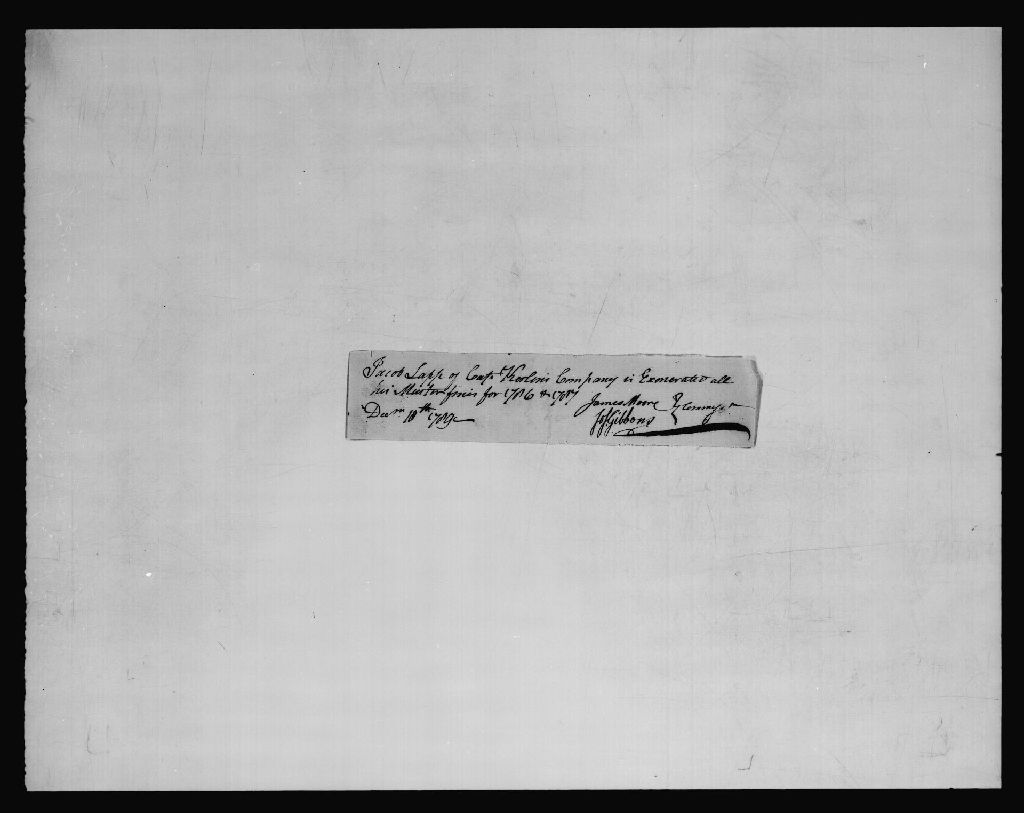 Jacob Lapp of Capt Kerlin's Company is Exonerated all
his Muster fines for 1786 & 1787
James Moore
Decm 18th 1789 Js Gibbons Commissr